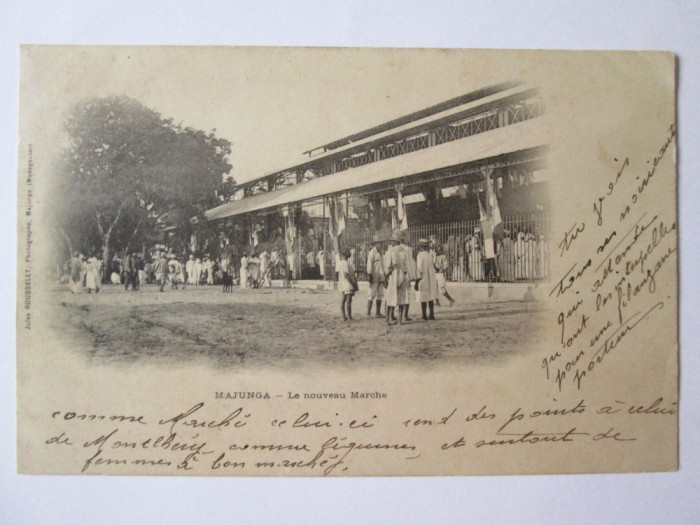 Jules ROUSSELET, Photographe, Majunga (Madagascar)
MAJUNGA — Le nouveau Marche
tu vois
tous ses
qui attendent
qu'ont les
pour une filanzane
porteur.
comme Marché celui-ci rend des points à celui
de comme légumes et surtout de
femmes à bon marché,